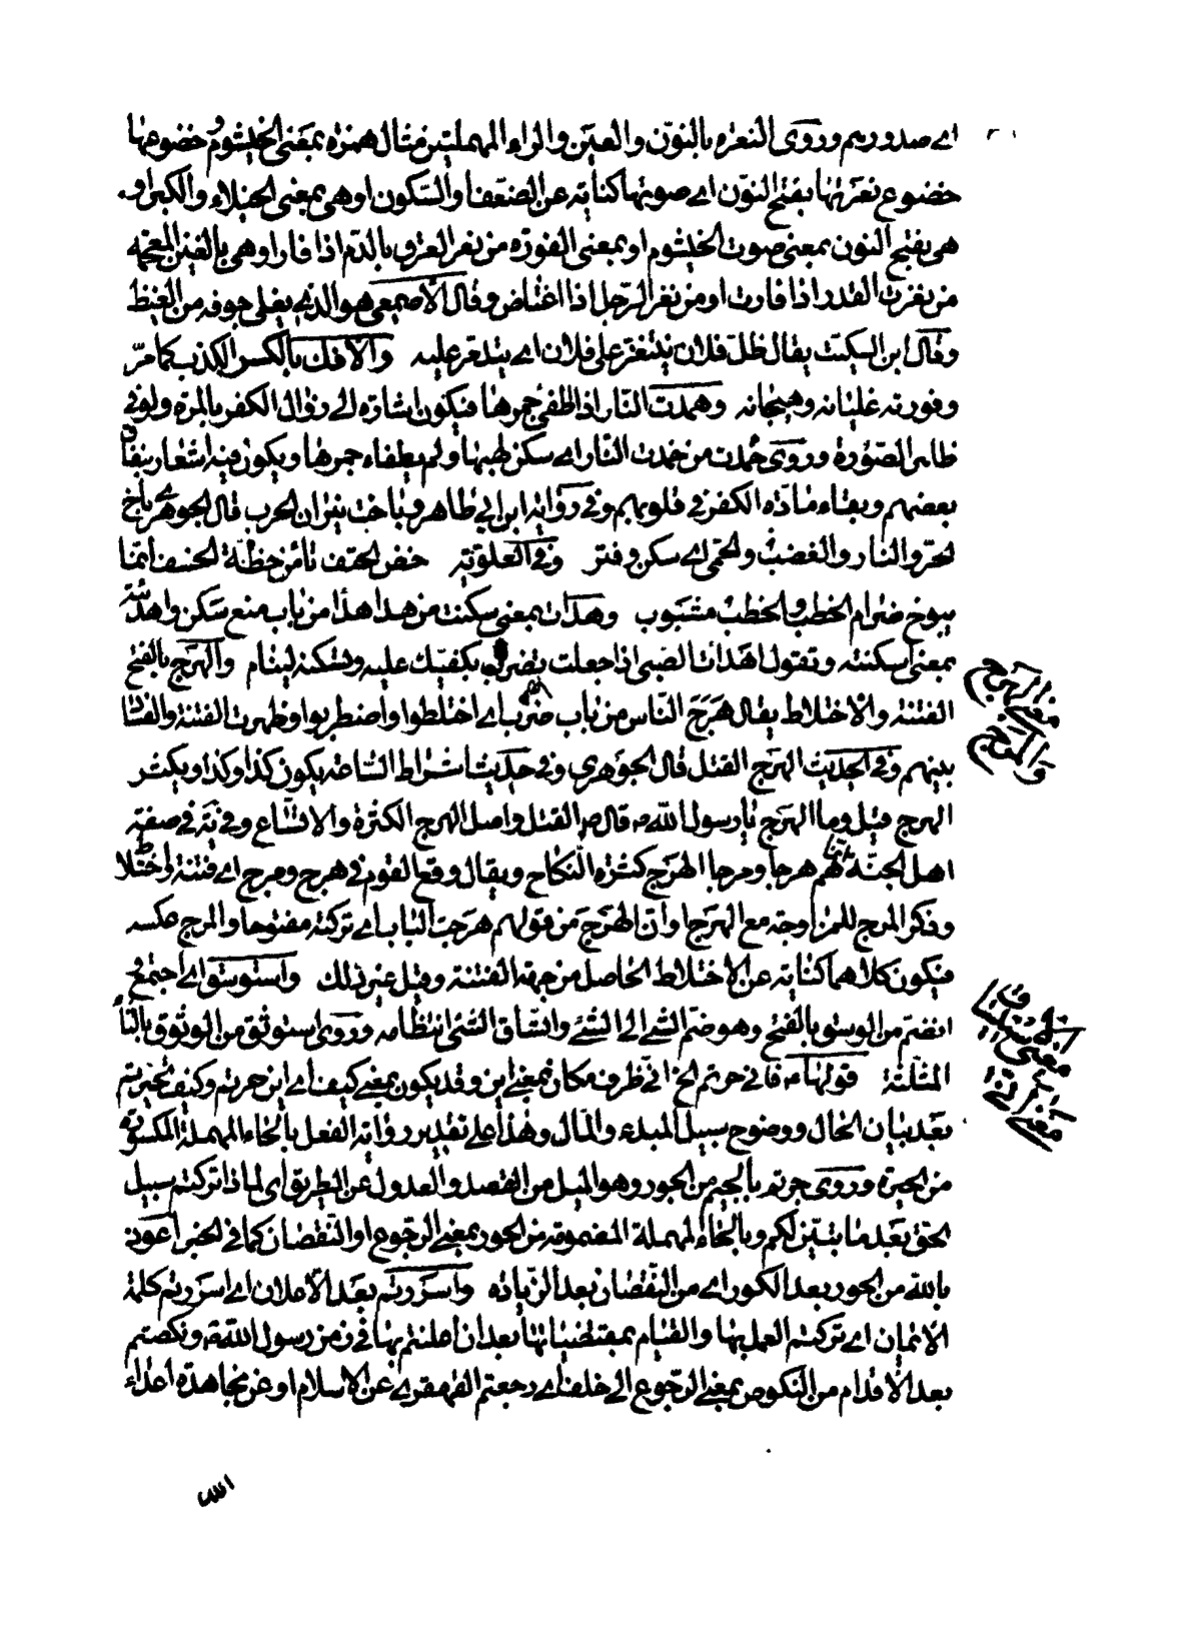 اى صدورهم وروى النعرة بالنون والعين والراء المهملتين مثال همزة بمعنى الخيشوم خضوعها
خضوع نعرتها بفتح النون اى صوتها كناية عن الضعف والسكون او هى بمعنى الخيلاء والكبر او
هى بفتح النون بمعنى صوت الخيشوم او بمعنى الفورة من نعر العرق بالدم اذا فار او هى بالغين المعجمة
من نغرت القدر اذا فارت او من نغر الرجل اذا اغتاض وقال الاصمعى هو الذى يغلى جوفه من الغيظ
وقال ابن السكيت يقال ظل فلان يتنغر على فلان اى يتذمر عليه والافك بالكسر الكذب كما مر
وفورته غليانه وهيجانه وهمدت النار اذا طفئ جمرها فيكون اشارة الى زوال الكفر بالمرة ولو فى
ظاهر الصورة وروى خمدت من خمدت النار اى سكن لهبها ولم يطفاء جمرها ويكون فيه اشعار بنفاق
بعضهم وبقاء مادة الكفر فى قلوبهم وفى رواية ابن ابى طاهر وباخت نيران الحرب قال الجوهرى باخ
الحر والنار والغضب والحمى اى سكن وفتر وفى العلوية
يبوخ ضرام الخطب والخطب مشبوب وهدات بمعنى سكنت من هدا هدأ من باب منع سكن واهدئته
بمعنى اسكنته وتقول اهدات الصبى اذا جعلت تضرب بكفيك عليه وتسكنه لينام والهرج بالفتح
الفتنة والاختلاط يقال هرج الناس من باب ضرب اى اختلطوا واضطربوا وظهرت الفتنة والفشا
بينهم وفى الحديث الهرج القتل قال الجوهرى وفى حديث اشراط الساعة يكون كذا وكذا ويكثر
الهرج قيل وما الهرج يا رسول الله ص قال ص القتل واصل الهرج الكثرة والاتساع وفى نة فى صفة
اهل الجنة هرجا ومرجا الهرج كثرة النكاح ويقال وقع القوم فى هرج ومرج اى فتنة واختلا
وذكر المرج للمزاوجة مع الهرج او ان الهرج من قولهم هرجت الباب اى تركته مفتوحا والمرج عكسه
فيكون كلاهما كناية عن الاختلاط الحاصل من جهة الفتنة وقيل غير ذلك واستوسق اى اجتمع و
انضم من الوسق بالفتح وهو ضم الشئ الى الشئ واتساق الشئ انتظامه وروى استوثق من الوثوق بالثاء
المثلثة قولها ع فانى حرتم الخ انى ظرف مكان بمعنى اين وقد يكون بمعنى كيف اى اين حرتم وكيف تحيرتم
بعد بيان الحال ووضوح سبيل المبدء والمال وهذا على تقدير رواية الفعل بالحاء المهملة المكسورة
من الحيرة وروى جرتم بالجيم من الجور وهو الميل من القصد والعدول عن الطريق اى لماذا تركتم سبيل
الحق بعد ما تبين لكم وبالحاء المهملة المضمومة من الحور بمعنى الرجوع او النقصان كما فى الخبر اعوذ
بالله من الحور بعد الكور اى من النقصان بعد الزيادة واسررتم بعد الاعلان اى اسررتم كلمة
الايمان اى تركتم العمل بها والقيام بمقتضياتها بعد ان اعلنتم بها فى زمن رسول الله ص ونكصتم
بعد الاقدام من النكوص بمعنى الرجوع الى خلف اى رجعتم القهقرى عن الاسلام او عن مجاهدة اعداء
الله
معنى الهرج
والمرج
معنى
معنى انى